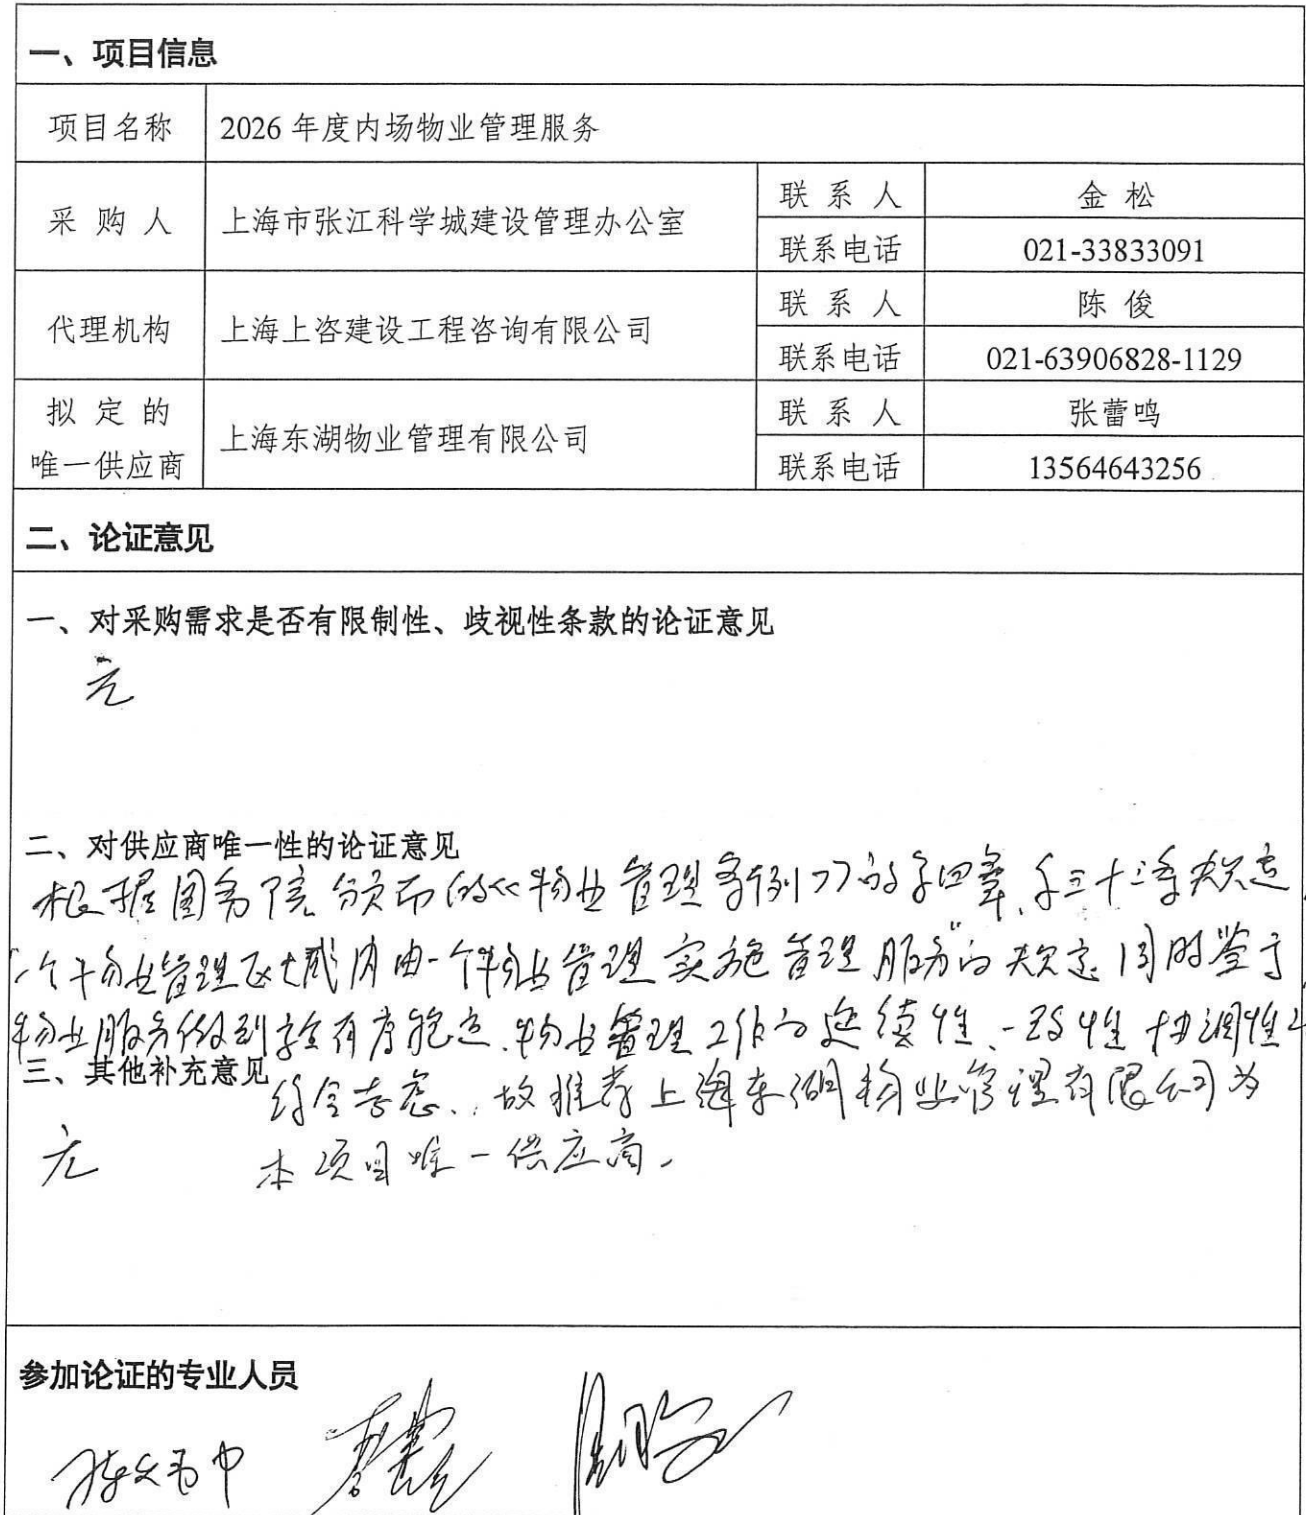 一、项目信息
项目名称 2026 年度内场物业管理服务
采购人 上海市张江科学城建设管理办公室 联系人 金松
联系电话 021-33833091
代理机构 上海上咨建设工程咨询有限公司 联系人 陈俊
联系电话 021-63906828-1129
拟定的唯一供应商 上海东湖物业管理有限公司 联系人 张蕾鸣
联系电话 13564643256
二、论证意见
一、对采购需求是否有限制性、歧视性条款的论证意见
无
二、对供应商唯一性的论证意见
根据国务院颁布的《物业管理条例》的第四章、第三十三条规定
"一个物业管理区域内由一个物业管理实施管理服务"的规定同时鉴于
物业服务做到安全有序稳定、物业管理工作的延续性、一致性协调性
三、其他补充意见
综合考虑、故推荐上海东湖物业管理有限公司为
无 本项目唯一供应商。
参加论证的专业人员